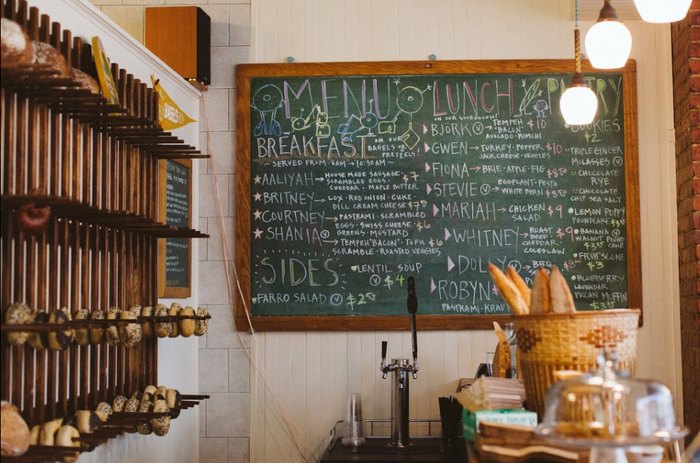 BAGELS
MENU
BREAKFAST ON OUR BAGELS or PRETZELS
~ SERVED FROM 8AM → 10:30AM ~
★ AALIYAH → HOUSE MADE SAUSAGE $7
SCRAMBLED EGGS
CHEDDAR · MAPLE BUTTER
★ BRITNEY → LOX · RED ONION · CUKE
DILL CREAM CHEESE $7
★ COURTNEY → PASTRAMI · SCRAMBLED
EGGS · SWISS CHEESE $6
★ SHANIA Ⓥ GREENS · MUSTARD
→ TEMPEH "BACON" · TOFU $6
SCRAMBLE · ROASTED VEGGIES
SIDES
• LENTIL SOUP Ⓥ $4
• FARRO SALAD Ⓥ $2.50
LUNCH
ON OUR SOURDOUGH!
BJÖRK Ⓥ → TEMPEH $10
"BACON"
AVOCADO · KIMCHI
GWEN → TURKEY · PEPPER $10
JACK CHEESE · VEGGIES
FIONA → BRIE · APPLE · FIG $8
STEVIE Ⓥ → EGGPLANT · PESTO
WHITE BEAN $8.50
MARIAH → CHICKEN $9
SALAD
WHITNEY → ROAST $9
BEEF
CHEDDAR
COLESLAW
DOLLY Ⓥ → BBQ
ROBYN
PASTRAMI · KRAUT
PASTRY
COOKIES
$2
• TRIPLE GINGER
MOLASSES Ⓥ
• CHOCOLATE
RYE
• CHOCOLATE
CHIP SEA SALT
• LEMON POPPY
POUND CAKE
• BANANA Ⓥ
WALNUT POUND
• FRUIT SCONE
$3
• BLUEBERRY
LAVENDER
PECAN MUFFIN